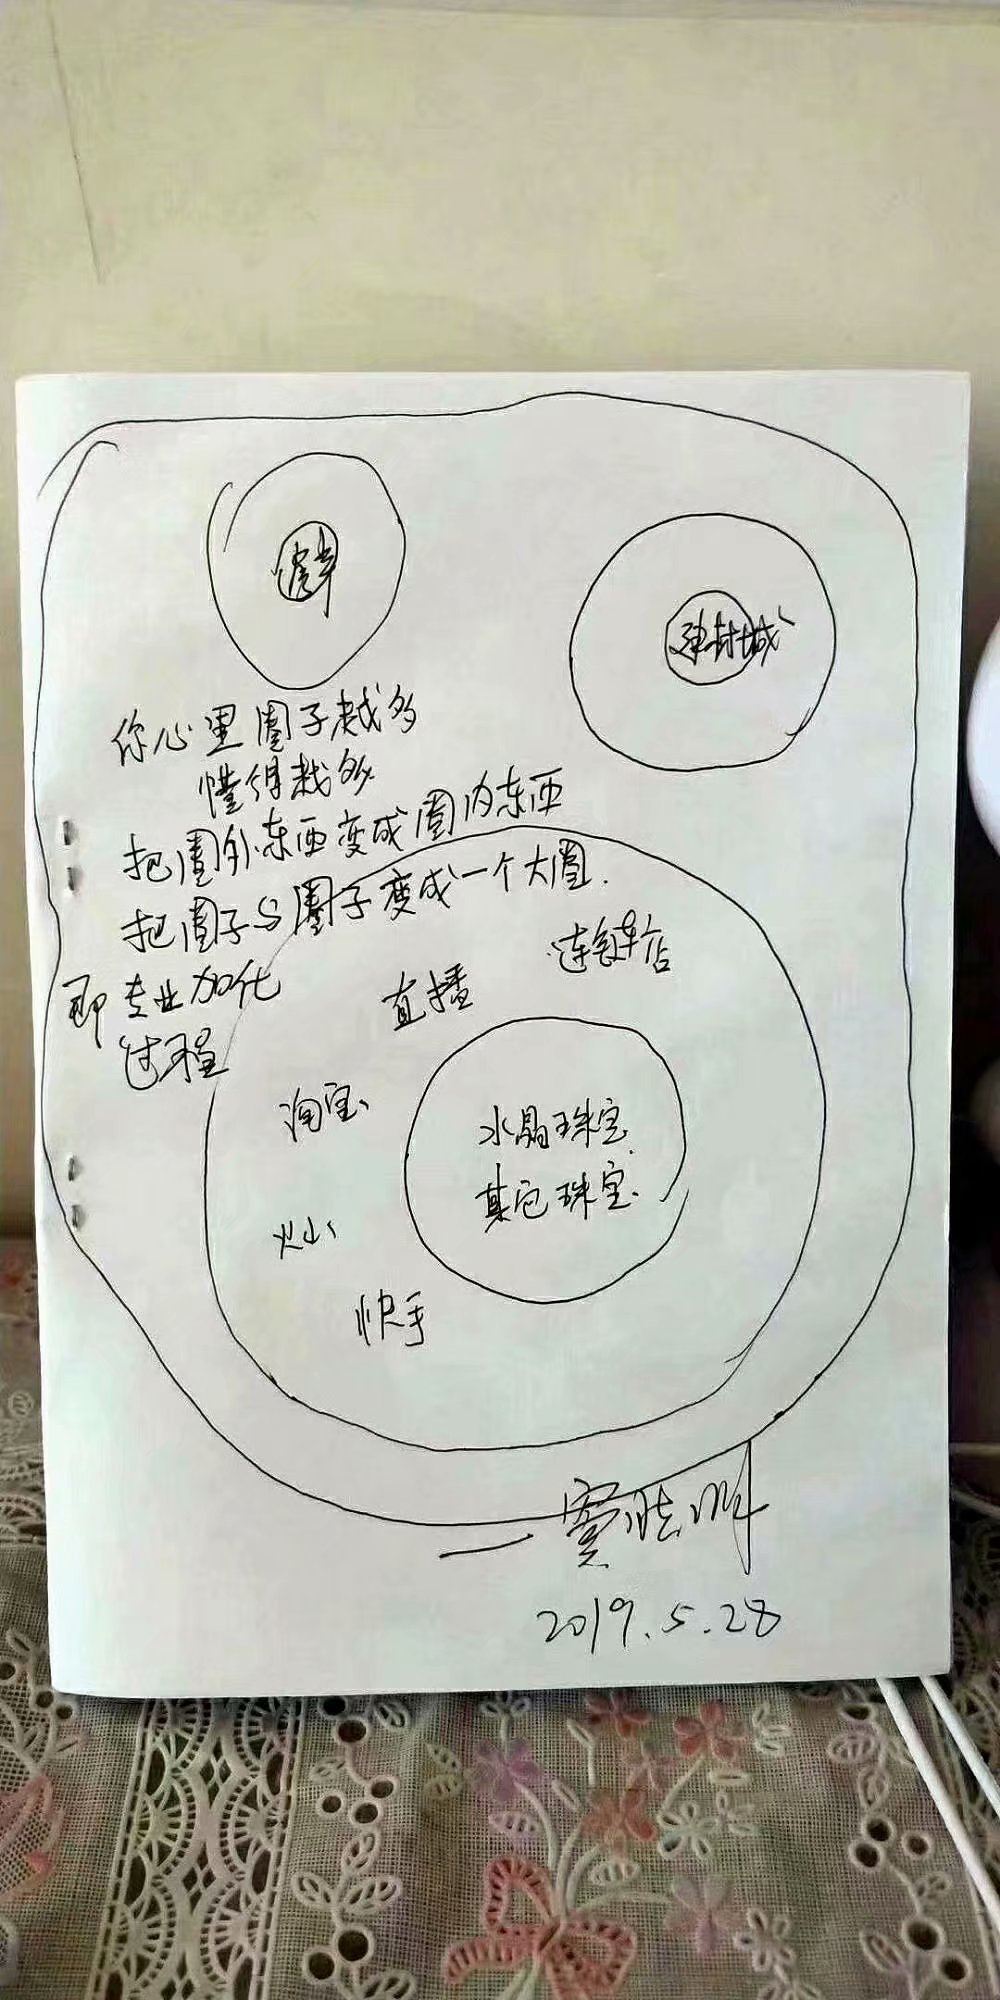 你心里圈子越多
懂得越多
把圈外东西变成圈内东西
把圈子与圈子变成一个大圈.
即专业加化
过程
连锁店
直播
淘宝
水晶珠宝
其它珠宝
火山
快手
2019.5.28